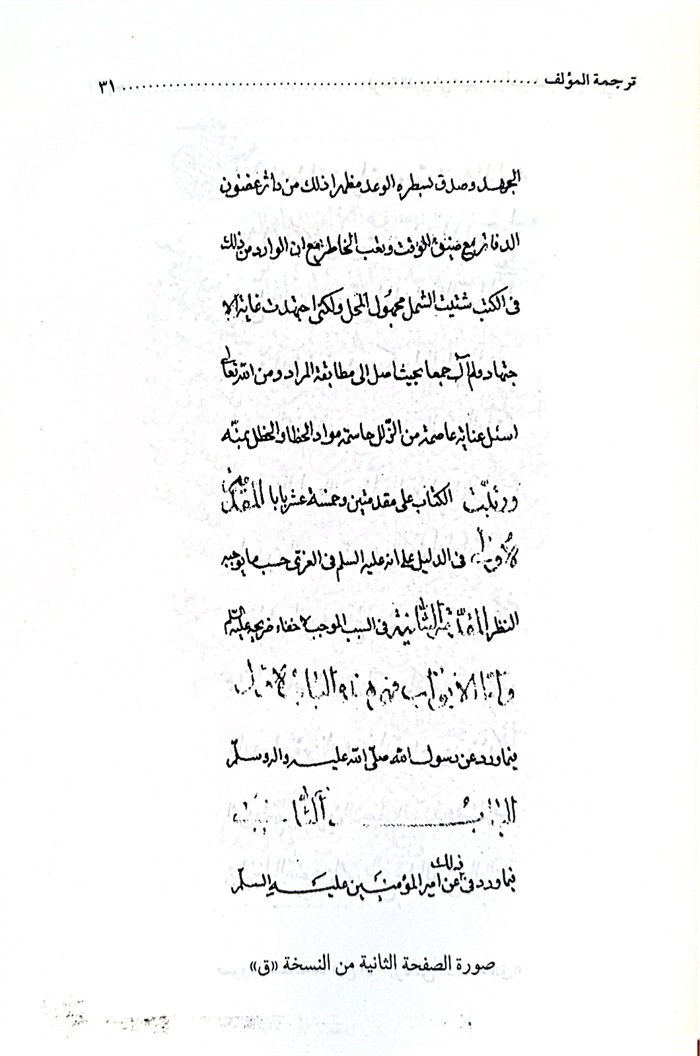 ترجمة المؤلف ........................................................ ٣١
الجهد وصدق لسطره الوعد مظهرا ذلك من داثر غضون
الدفاتر مع ضيق الوقت وتعب الخاطر مع ان الوارد من ذلك
فى الكتب شتيت الشمل مجهول المحل ولكنى اجتهدت غاية الا
جتهاد ولم آل جمعا بحيث اصل الى مطابقة المراد ومن الله تعالى
اسئل عناية عاصمة من الزلل حاسمة مواد الخطا والخطل بمنّه
ورتّبت الكتاب على مقدمتين وخمسة عشر بابا المقدمة
الأولى فى الدليل على انه عليه السلم فى الغرى حسب ما يوجبه
النظر المقدّمة الثّانية فى السبب الموجب لاخفاء ضريحه عليه السّلم
وامّا الابواب فهى هذه الباب الاول
فيما ورد عن رسول الله صلّى الله عليه واله وسلّم
الباب الثّانى
فيما ورد فى ذلك عن امير المؤمنين عليه السلم
صورة الصفحة الثانية من النسخة «ق»